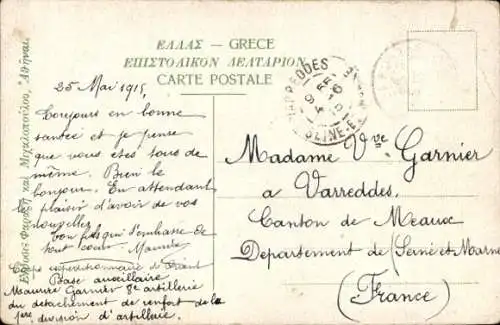 ΕΛΛΑΣ – GRECE
ΕΠΙΣΤΟΛΙΚΟΝ ΔΕΛΤΑΡΙΟΝ
CARTE POSTALE
VARREDDES
SEINE-E
25 Mai 1915
Toujours en bonne
santé et je pense
que vous etes tous de
même. Bien le
bonjour. En attendant
le plaisir d'avoir de vos
nouvelles
Ton fils qui t'embrasse de
tout coeur. Maurice
Corps expéditionnaire d'Orient
Base auxillaire
Maurice Garnier 8e artillerie
du detachement de renfort de la
1ère division d'artillerie.
Madame Vve Garnier
a Varreddes.
Canton de Meaux
Departement de Seine et Marne
(France)
Αθήναι.